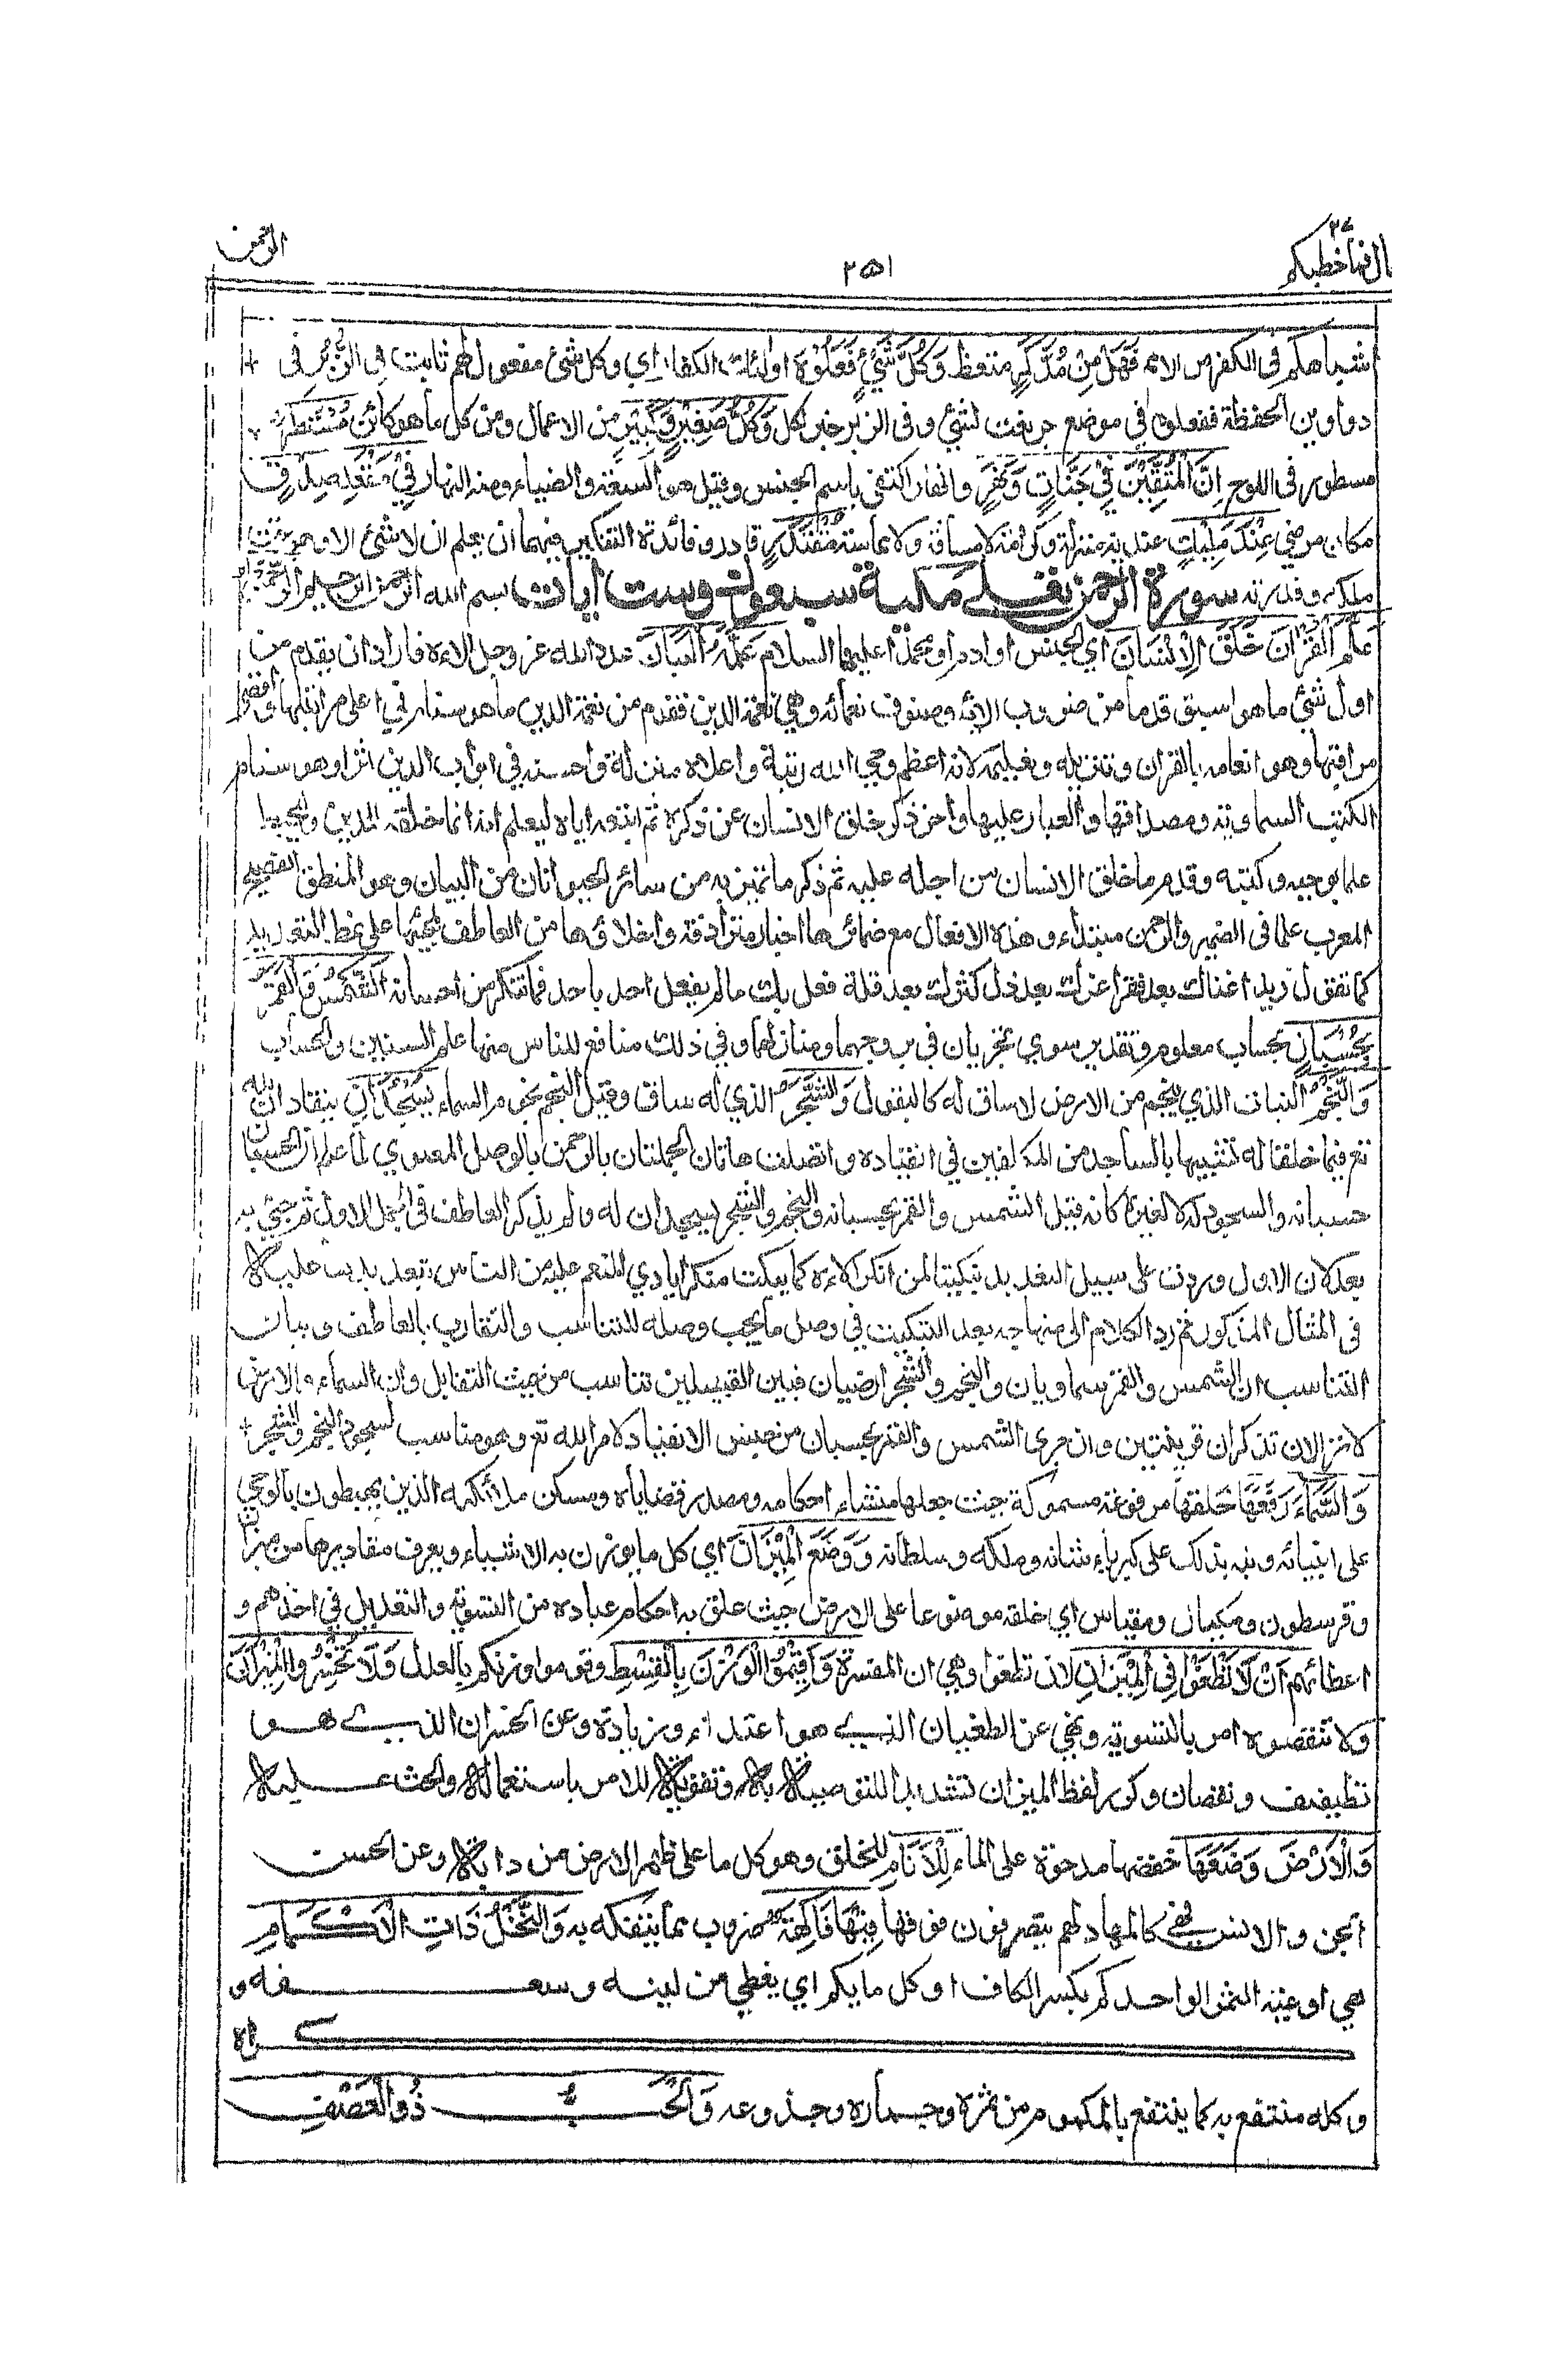 قال فما خطبكم ٢٧
٢٥١
الرحمن
اشياعكم فى الكفر من الامم فَهَلْ مِنْ مُدَّكِرٍ متعظ وَكُلُّ شَيْءٍ فَعَلُوْهُ اولئك الكفار اي وكل شئ مفعول لهم ثابت فِى الزُّبُرِ فى
دواوين الحفظة ففعلوه في موضع جر نعت لشئ وفى الزبر خبر لكل وَكُلُّ صَغِيْرٍ وَّكَبِيْرٍ من الاعمال ومن كل ما هو كائن مُسْتَطَرٌ
مسطور فى اللوح اِنَّ الْمُتَّقِيْنَ فِيْ جَنّٰتٍ وَّنَهَرٍ وانهار اكتفى باسم الجنس وقيل هو السعة والضياء ومنه النهار فِيْ مَقْعَدِ صِدْقٍ
مكان مرضي عِنْدَ مَلِيْكٍ عندية منزلة وكرامة لا مسافة ولا مماسة مُقْتَدِرٍ قادر وفائدة التنكير فيهما ان يعلم ان لا شئ الا وهو تحت
ملكه وقدرته سورة الرحمن جل وعلى مكية سبعون وست ايات بسم الله الرحمن الرحيم الرَّحْمٰنُ
عَلَّمَ الْقُرْاٰنَ خَلَقَ الْاِنْسَانَ اي الجنس او ادم او محمدا عليهما السلام عَلَّمَهُ الْبَيَانَ عدد الله عز وجل الاءه فاراد ان يقدم من
اول شئ ما هو اسبق قدما من ضروب الائه وصنوف نعمائه وهي نعمة الدين فقدم من نعمة الدين ما هو سنام في اعلى مراتبها واقصى
مراقيها وهو انعامه بالقران وتنزيله وتعليمه لانه اعظم وحي الله رتبة واعلاه منزلة واحسنه في ابواب الدين اثرا وهو سنام
الكتب السماوية ومصداقها والعيار عليها واخر ذكر خلق الانسان عن ذكره ثم اتبعه اياه ليعلم انه انما خلقه للدين وليحيط
علما بوحيه وكتبه وقدم ما خلق الانسان من اجله عليه ثم ذكر ما تميز به من سائر الحيوانات من البيان وهو المنطق الفصيح
المعرب عما فى الضمير والرحمن مبتداء وهذه الافعال مع ضمائرها اخبار مترادفة واخلاؤها من العاطف لمجيئها على نمط التعديد
كما تقول زيد اغناك بعد فقر اعزك بعد ذل كثرك بعد قلة فعل بك ما لم يفعل احد باحد فما تنكر من احسانه اَلشَّمْسُ وَالْقَمَرُ
بِحُسْبَانٍ بحساب معلوم وتقدير سوي يجريان في بروجهما ومنازلهما وفي ذلك منافع للناس منها علم السنين والحساب
وَّالنَّجْمُ النبات الذي ينجم من الارض لا ساق له كالبقول وَالشَّجَرُ الذي له ساق وقيل النجم نجوم السماء يَسْجُدَانِ ينقادان لله
تع فيما خلقا له تشبيها بالساجد من المكلفين في انقياده واتصلت هاتان الجملتان بالرحمن بالوصل المعنوي لما علم ان الحسبان
حسبانه والسجود له لا لغيره كانه قيل الشمس والقمر بحسبانه والنجم والشجر يسجدان له ولم يذكر العاطف فى الجمل الاول ثم جئ به
بعد لان الاول وردت على سبيل التعديد تبكيتا لمن انكر الاءه كما يبكت منكر ايادي المنعم عليه من الناس بتعديدها عليه
فى المثال المذكور ثم رد الكلام الى منهاجه بعد التبكيت في وصل ما يجب وصله للتناسب والتقارب بالعاطف وبيان
التناسب ان الشمس والقمر سماويان والنجم والشجر ارضيان فبين القبيلين تناسب من حيث التقابل وان السماء والارض
لا تزالان تذكران قرينتين وان جري الشمس والقمر بحسبان من جنس الانقياد لامر الله تع وهو مناسب لسجود النجم والشجر
وَالسَّمَاءَ رَفَعَهَا خلقها مرفوعة مسموكة حيث جعلها منشاء احكامه ومصدر قضاياه ومسكن ملائكته الذين يهبطون بالوحي
على انبيائه ونبه بذلك على كبرياء شانه وملكه وسلطانه وَوَضَعَ الْمِيْزَانَ اي كل ما يوزن به الاشياء ويعرف مقاديرها من ميزان
وقرسطون ومكيال ومقياس اي خلقه موضوعا على الارض حيث علق به احكام عباده من التسوية والتعديل في اخذهم و
اعطائهم اَنْ لَّا تَطْغَوْا فِى الْمِيْزَانِ لان تطغوا وهي ان المفسرة وَاَقِيْمُوا الْوَزْنَ بِالْقِسْطِ وقوموا وزنكم بالعدل وَلَا تُخْسِرُوا الْمِيْزَانَ
ولا تنقصوه امر بالتسوية ونهي عن الطغيان الذي هو اعتداء وزيادة وعن الخسران الذي هو
تطفيف ونقصان وكرر لفظ الميزان تشديدا للتوصية به وتقوية للامر باستعماله والحث عليه
وَالْاَرْضَ وَضَعَهَا خفضها مدحوة على الماء لِلْاَنَامِ للخلق وهو كل ما على ظهر الارض من دابة وعن الحسن
الجن والانس فهي كالمهاد لهم يتصرفون فوقها فِيْهَا فَاكِهَةٌ ضروب مما يتفكه به وَّالنَّخْلُ ذَاتِ الْاَكْمَامِ
هي اوعية الثمر الواحد كم بكسر الكاف او كل ما يكم اي يغطي من ليفه وسعفه و
كفراه
وكله منتفع به كما ينتفع بالمكموم من ثمره وجماره وجذوعه وَالْحَبُّ ذُو الْعَصْفِ